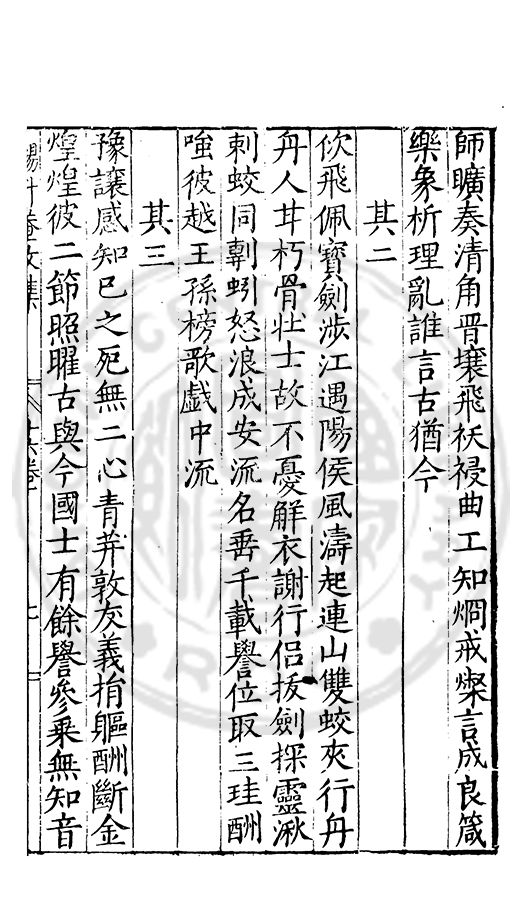 師曠奏清角晉壤飛祅祲曲工知烱戒燦言成良箴
樂象析理亂誰言古猶今
其二
佽飛佩寶劍涉江遇陽侯風濤起連山雙蛟夾行舟
舟人甘朽骨壯士故不憂解衣謝行侶拔劍探靈湫
刺蛟同剸蚓怒浪成安流名垂千載譽位取三珪酬
嗤彼越王孫榜歌戯中流
其三
豫讓感知已之死無二心青荓敦友義捐軀酬斷金
煌煌彼二節照曜古與今國士有餘譽參乗無知音
卷